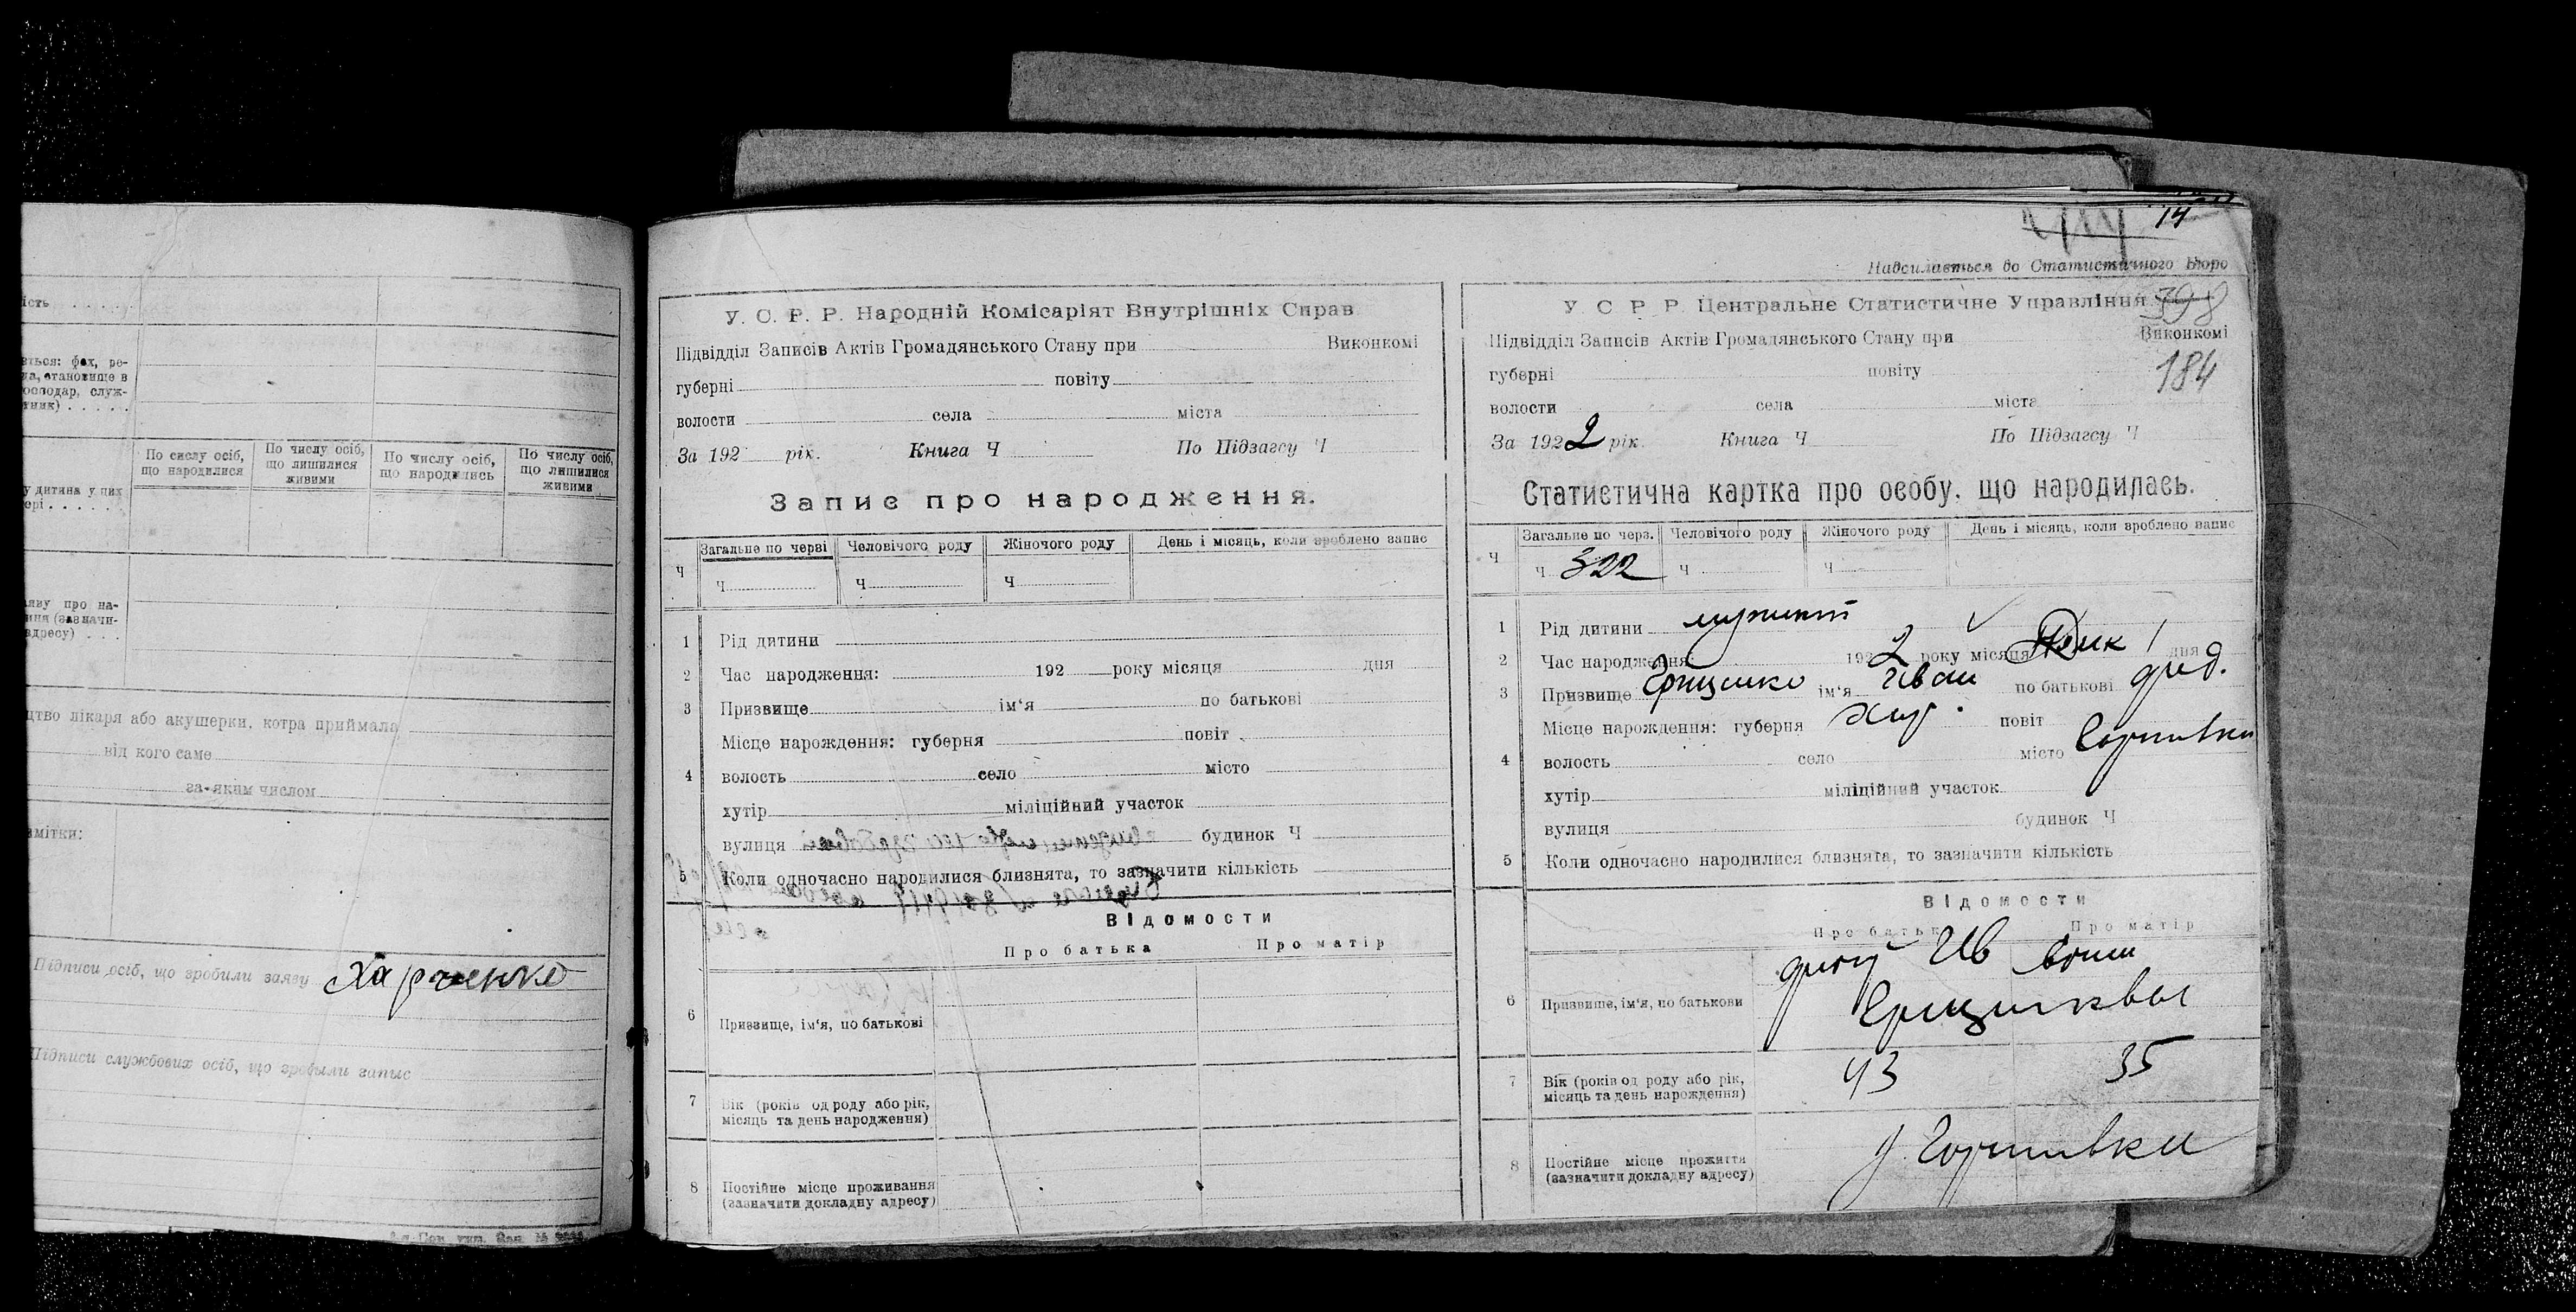 ість . . . . . .
ється: фах, ре-
да, становище в
господар, служ-
тник) . . . . .
По числу осіб, що народилися
По числу осіб, що лишилися живими
По числу осіб, що народились
По числу осіб, що лишилися живими
у дитина у них
ері . . . . . .
аяву про на-
ння (зазначи-
адресу) . . .
цтво лікаря або акушерки, котра приймала
від кого саме
за яким числом
змітки:
Підписи осіб, що зробили заяву Харченко
Підписи службових осіб, що зробыли запыс
У. С. Р. Р. Народній Комісаріят Внутрішніх Справ
Підвідділ Записів Актів Громадянського Стану при Виконкомі
губерні повіту
волости села міста
За 192 рік. Книга Ч По Підзагсу Ч
Запис про народження.
Загальне по черві Человічого роду Жіночого роду День і місяць, коли зроблено запис
Ч Ч Ч Ч
1 Рід дитини
2 Час народження: 192 року місяця дня
3 Призвище ім'я по батькові
Місце нарождення: губерня повіт
4 волость село місто
хутір міліційний участок
вулиця будинок Ч
5 Коли одночасно народилися близнята, то зазначити кількість
Відомости
Про батька Про матір
6 Призвище, ім'я, по батькові
7 Вік (років од роду або рік,
місяць та день народження)
8 Постійне місце проживання
(зазначити докладну адресу)
14
Надсилається до Статистичного Бюро
У С Р Р Центральне Статистичне Управління 398
Підвідділ Записів Актів Громадянського Стану при Виконкомі
губерні повіту 184
волости села міста
За 1922 рік. Книга Ч По Підзагсу Ч
Статистична картка про особу, що народилась.
Загальне по черз. Человічого роду Жіночого роду День і місяць, коли зроблено запис
Ч Ч 322 Ч Ч
1 Рід дитини
2 Час народження: 1922 року місяця 1 дня
3 Призвище Грищенко ім'я Иван по батькові
Місце нарождення: губерня Хар. повіт
4 волость село місто
хутір міліційний участок
вулиця будинок Ч
5 Коли одночасно народилися близнята, то зазначити кількість
Відомости
Про батька Про матір
6 Призвище, ім'я, по батькови Ив
7 Вік (років од роду або рік,
місяць та день нарождення) 43 35
8 Постійне місце прожиття
(зазначити докладну адресу)